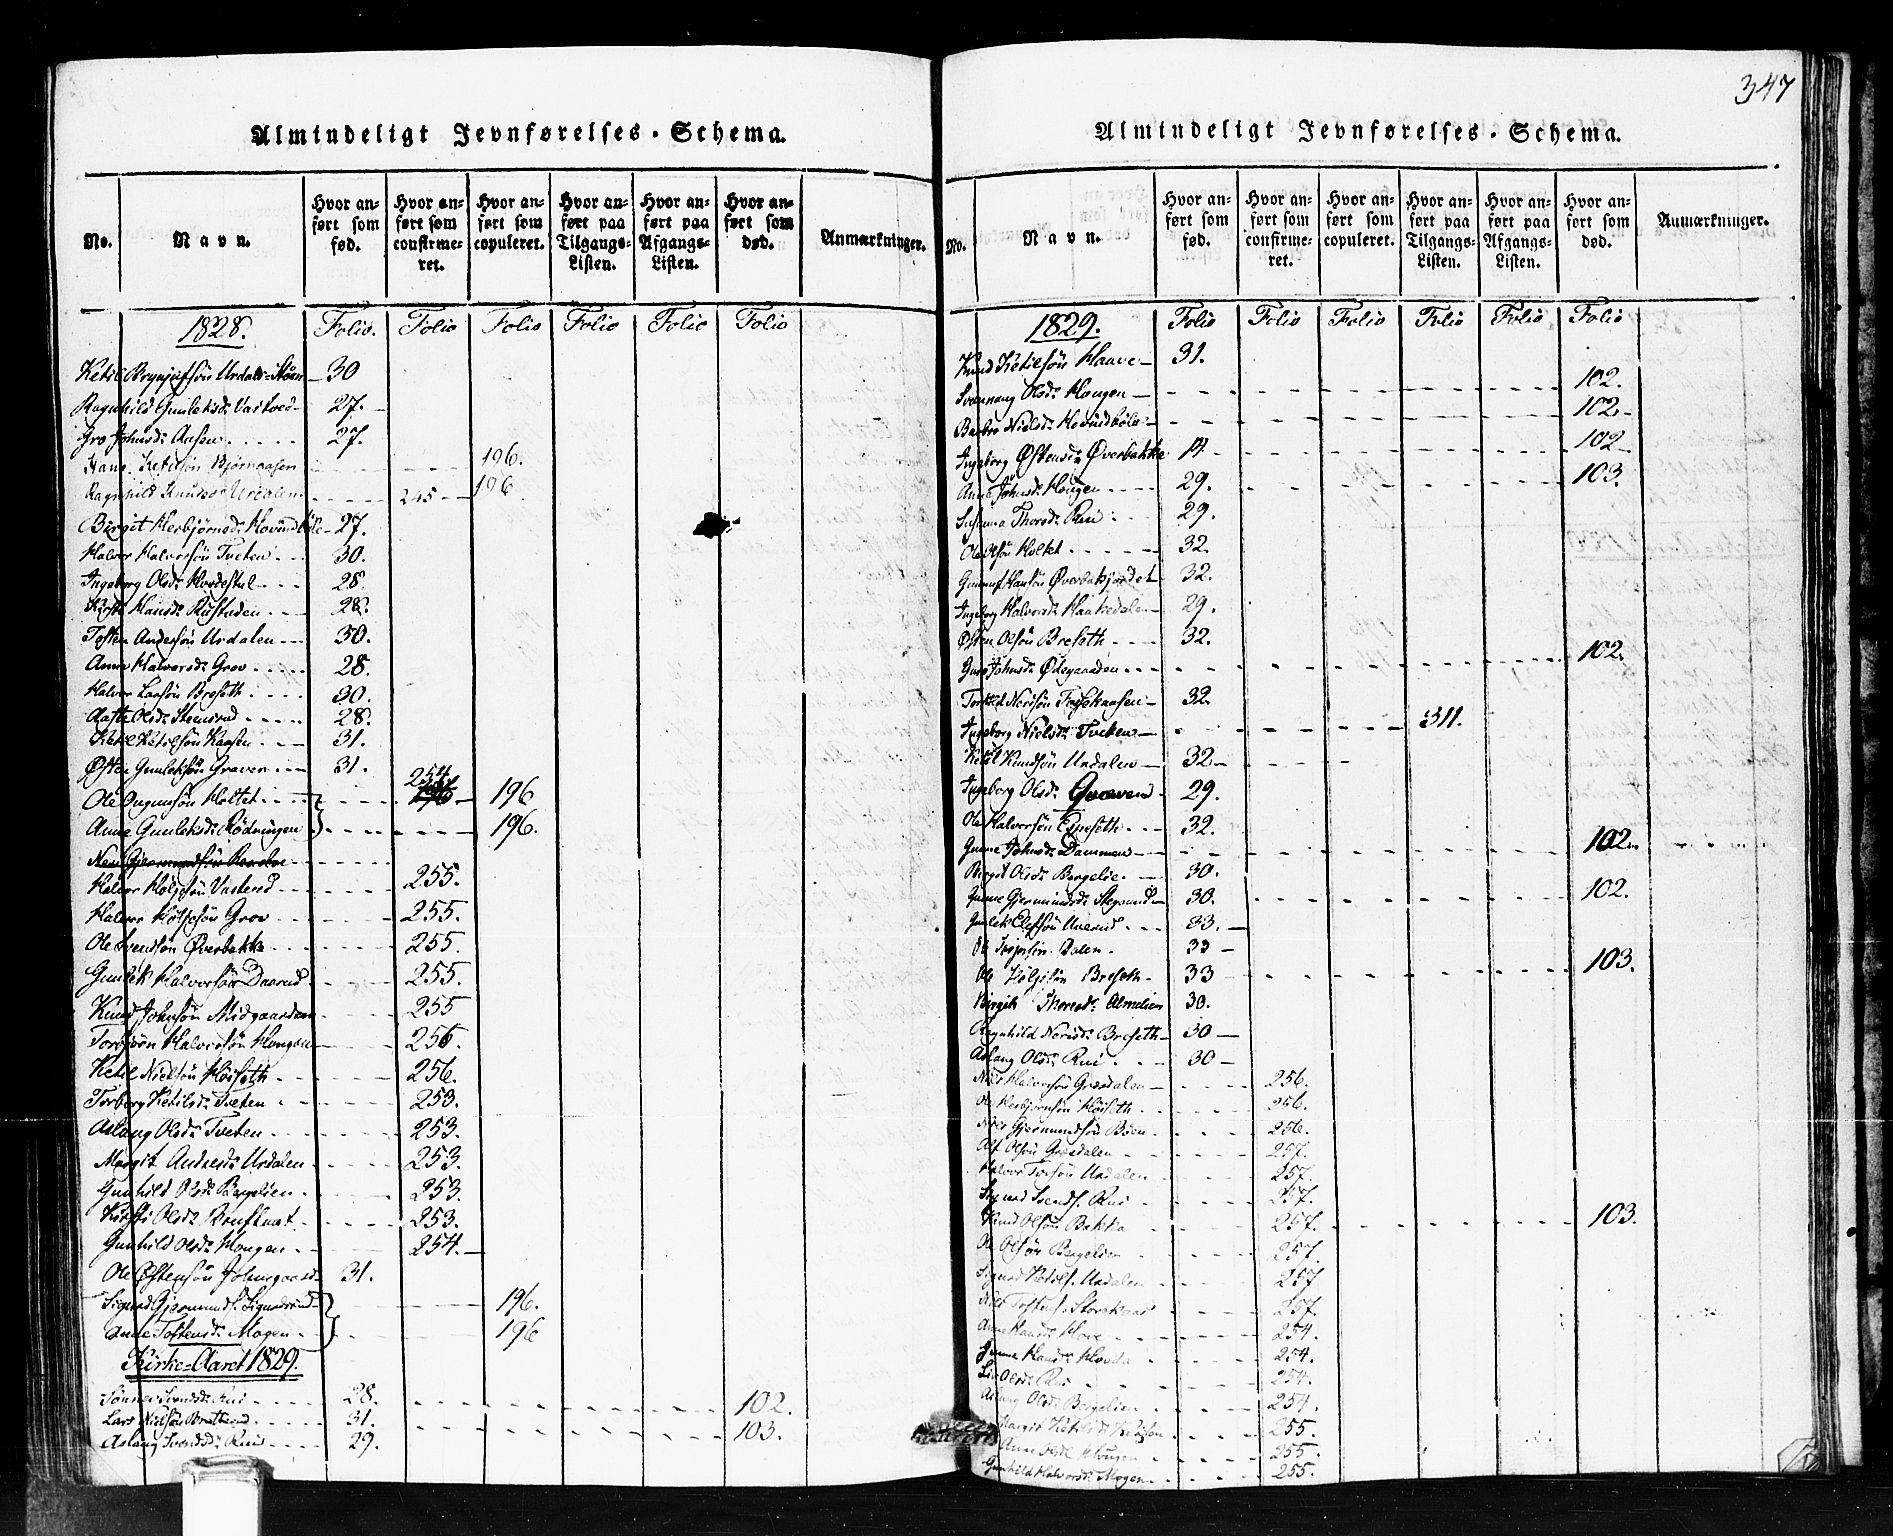 347
Almindeligt Jevnførelses-Schema.
No.
Navn.
Hvor anført som fød.
Hvor anført som confirmeret.
Hvor anført som copuleret.
Hvor anført paa Tilgangs-Listen.
Hvor anført paa Afgangs-Listen.
Hvor anført som død.
Anmærkninger.
1828. Folio. Folio Folio Folio Folio Folio
30
Ragnhild Gunleksd: 27.
Gro Johnsd: Aasen 27.
Ketilsön Bjørnaasen 196.
Ragnhild Knudsd: Urdalen 245 196
Birgit Herbjörnsd: 27.
Halvor Halvorsön Tveten 30.
Ingeborg Olsd: 28
Hansd: Rustaden 28.
Tosten Andersön Urdalen 30.
Anne Halvorsd: Grov 28.
Halvor Larsön Breseth 30.
Olsd: Steensrud 28.
Ketil Ketilsön Haasen 31.
Østen Gunleksön Graven 31.
Ole Holtet 254 196
Anne Gunleksd: Rödningen 196.
Halvor 255.
Halvor Grov 255.
Ole Svendsön Øverbakke 255.
Gunlek Halvorsön Daarud 255.
Knud Johnsön Midgaarden 255
Torbjörn Halvorsön Hougen 256.
Ketil Nielsön Höiseth 256.
Torborg Ketilsd: Tveten 253.
Aslaug Olsd: Tveten 253.
Margit Andersd: Urdalen 253.
Gunhild Olsd: Bergelien 253.
Kirsti Olsd: 253.
Gunhild Olsd: Hougen 254.
Ole Østensön 31.
Sigurd Gjermunds. Sigurdsrud 196.
Anne Tostensd: Mogen 196
Kirke-Aaret 1829.
Svendsd: Rui 28. 102.
Lars Nielsön 31. 103.
Aslaug Svendsd: Ruud 29.
Almindeligt Jevnførelses-Schema.
No.
Navn.
Hvor anført som fød.
Hvor anført som confirmeret.
Hvor anført som copuleret.
Hvor anført paa Tilgangs-Listen.
Hvor anført paa Afgangs-Listen.
Hvor anført som død.
Anmærkninger.
1829. Folio Folio Folio Folio Folio Folio
Knud Ketilsön Haave 31.
Svannaug Olsd: Hougen 102.
Barbro Nielsd: 102.
Ingeborg Østensd: Øverbakke 102
Anne Johnsd: Hougen 29. 103.
Susanna Thorsd: Rui 29.
Ole Olsön Holtet 32.
32.
Ingeborg Halvorsd: Haakedalen 29.
Østen Olsön Breseth 32.
Guro Johnsd: Ødegaarden 102.
32.
Ingeborg Nielsd: Tveten 311.
Ketil Knudsön Urdalen 32
Ingeborg Olsd: Graven 29.
Ole Halvorsön Espeseth 32.
Gunne Johnsd: Dammen 102.
Birgit Olsd: Bergelie 30.
Gunne Gjermundsd: 30. 102.
Gunlek 33.
Ole Dalen 33
Ole Breseth 33 103.
Birgit Thoresd: Almelien 30.
Ragnhild Nerisd: Breseth 30
Aslaug Olsd: Rui 30
Niels Halvorsön Grøsdalen 256.
Ole Herbjörnsön Höiseth 256.
Niels Gjermundsön Böen 256.
Olsön Grøsdalen 257.
Halvor Urdalen 257.
Sigurd Svends. Rui 257.
Knud Olsön Bakka 257. 103.
Ole Olsön Bergelien 257.
Sigurd Ketils. Urdalen 257
257.
Anne Hansd: Hove 254.
Hansd: Hovda 254.
Liv Olsd: Rui 254.
Aslaug Olsd: Bergelien 254.
Margit Ketilsd: 255.
Anne Olsd: Hougen 255.
Gunhild Halvorsd: Mogen 255.